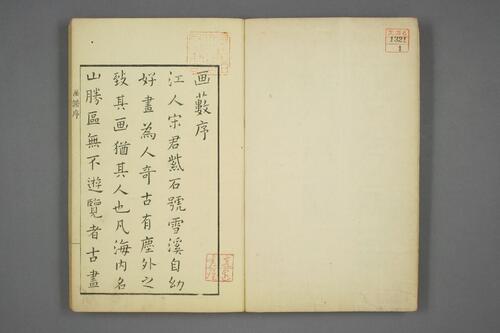 画藪序
江人宋君紫石號雪溪自幼
好畫為人奇古有塵外之
致其画猶其人也凡海内名
山勝區無不遊覽者古畫
画譜序
1321
1